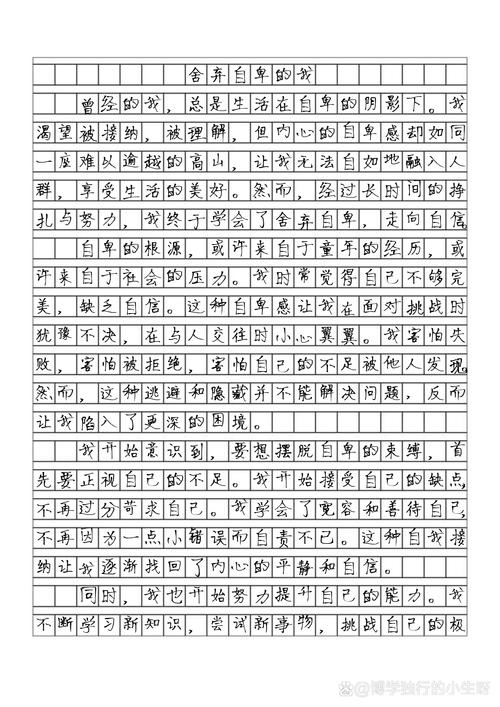 舍弃自卑的我
曾经的我，总是生活在自卑的阴影下。我
渴望被接纳，被理解，但内心的自卑感却如同
一座难以逾越的高山，让我无法自如地融入人
群，享受生活的美好。然而，经过长时间的挣
扎与努力，我终于学会了舍弃自卑，走向自信。
自卑的根源，或许来自于童年的经历，或
许来自于社会的压力。我时常觉得自己不够完
美，缺乏自信。这种自卑感让我在面对挑战时
犹豫不决，在与人交往时小心翼翼。我害怕失
败，害怕被拒绝，害怕自己的不足被他人发现。
然而，这种逃避和隐藏并不能解决问题，反而
让我陷入了更深的困境。
我开始意识到，要想摆脱自卑的束缚，首
先要正视自己的不足。我开始接受自己的缺点，
不再过分苛求自己。我学会了宽容和善待自己，
不再因为一点小错误而自责不已。这种自我接
纳让我逐渐找回了内心的平静和自信。
同时，我也开始努力提升自己的能力。我
不断学习新知识，尝试新事物，挑战自己的极
@博学独行的小生呀